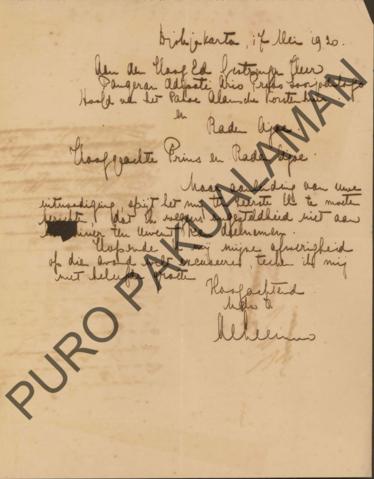 Djokjakarta, 17 Mei 1930.
Aan den Hoog Ed Gestrenge Heer
Pangeran Adipati Ario
Hoofd van het Pakoe Alamsche Vorstenhuis
en
Raden Ajoe
Hooggeachte Prins en Raden Ajoe.
Naar aanleiding van uwe
uitnoodiging, spijt het mij ten zeerste U te moeten
berichten, dat ik wegens ongesteldheid niet aan
diner ten Uwent kan deelnemen.
Hopende mij mijne afwezigheid
op die avond wilt excuseeren, teeken ik mij
met beleefde groeten
Hoogachtend
PURO PAKUALAMAN